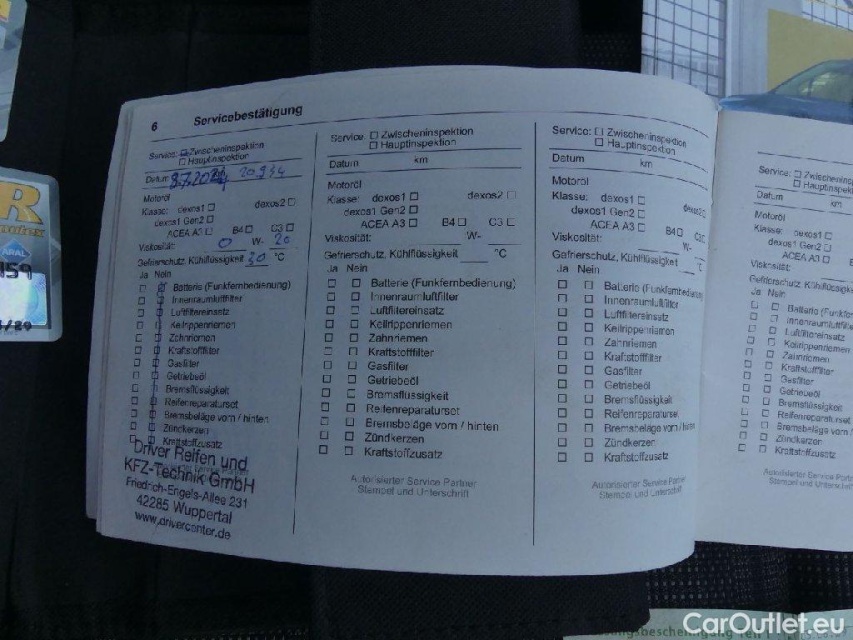 6 Servicebestätigung
Service: Zwischeninspektion
Hauptinspektion
Datum 20.934
Motoröl
Klasse: dexos1 dexos2
dexos1 Gen2
ACEA A3 B4 C3
Viskosität: 0 W- 20
Gefrierschutz, Kühlflüssigkeit 30 °C
Ja Nein
Batterie (Funkfernbedienung)
Innenraumluftfilter
Luftfiltereinsatz
Keilrippenriemen
Zahnriemen
Kraftstofffilter
Gasfilter
Getriebeöl
Bremsflüssigkeit
Reifenreparaturset
Bremsbeläge vorn / hinten
Zündkerzen
Kraftstoffzusatz
Driver Reifen und
KFZ-Technik GmbH
Friedrich-Engels-Allee 231
42285 Wuppertal
www.drivercenter.de
Service: Zwischeninspektion
Hauptinspektion
Datum km
Motoröl
Klasse: dexos1 dexos2
dexos1 Gen2
ACEA A3 B4 C3
Viskosität: W-
Gefrierschutz, Kühlflüssigkeit °C
Ja Nein
Batterie (Funkfernbedienung)
Innenraumluftfilter
Luftfiltereinsatz
Keilrippenriemen
Zahnriemen
Kraftstofffilter
Gasfilter
Getriebeöl
Bremsflüssigkeit
Reifenreparaturset
Bremsbeläge vorn / hinten
Zündkerzen
Kraftstoffzusatz
Autorisierter Service Partner
Stempel und Unterschrift
Service: Zwischeninspektion
Hauptinspektion
Datum km
Motoröl
Klasse: dexos1
dexos1 Gen2
ACEA A3 B4
Viskosität: W-
Gefrierschutz, Kühlflüssigkeit °C
Ja Nein
Batterie (Funkfernbedienung
Innenraumluftfilter
Luftfiltereinsatz
Keilrippenriemen
Zahnriemen
Kraftstofffilter
Gasfilter
Getriebeöl
Bremsflüssigkeit
Reifenreparaturse
Bremsbeläge vorn / hin
Zündkerzen
Kraftstoffzusatz
Autorisierter Service Partner
Stempel und Unterschrift
Service: Zwischeninspek
Hauptinspek
Datum km
Motoröl
Klasse: dexos1
dexos1 Gen2
ACEA A3
Viskosität:
Gefrierschutz, Kühlflüssigk
Ja Nein
Batterie (Funkfer
Innenraumluftfil
Luftfiltereinsatz
Keilrippenriemen
Zahnriemen
Kraftstofffilter
Gasfilter
Getriebeöl
Bremsflüssigkeit
Reifenreparaturse
Bremsbeläge vorn
Zündkerzen
Kraftstoffzusatz
Autorisierter Service Par
Stempel und Unterschri
R
ARAL
959
CarOutlet.eu